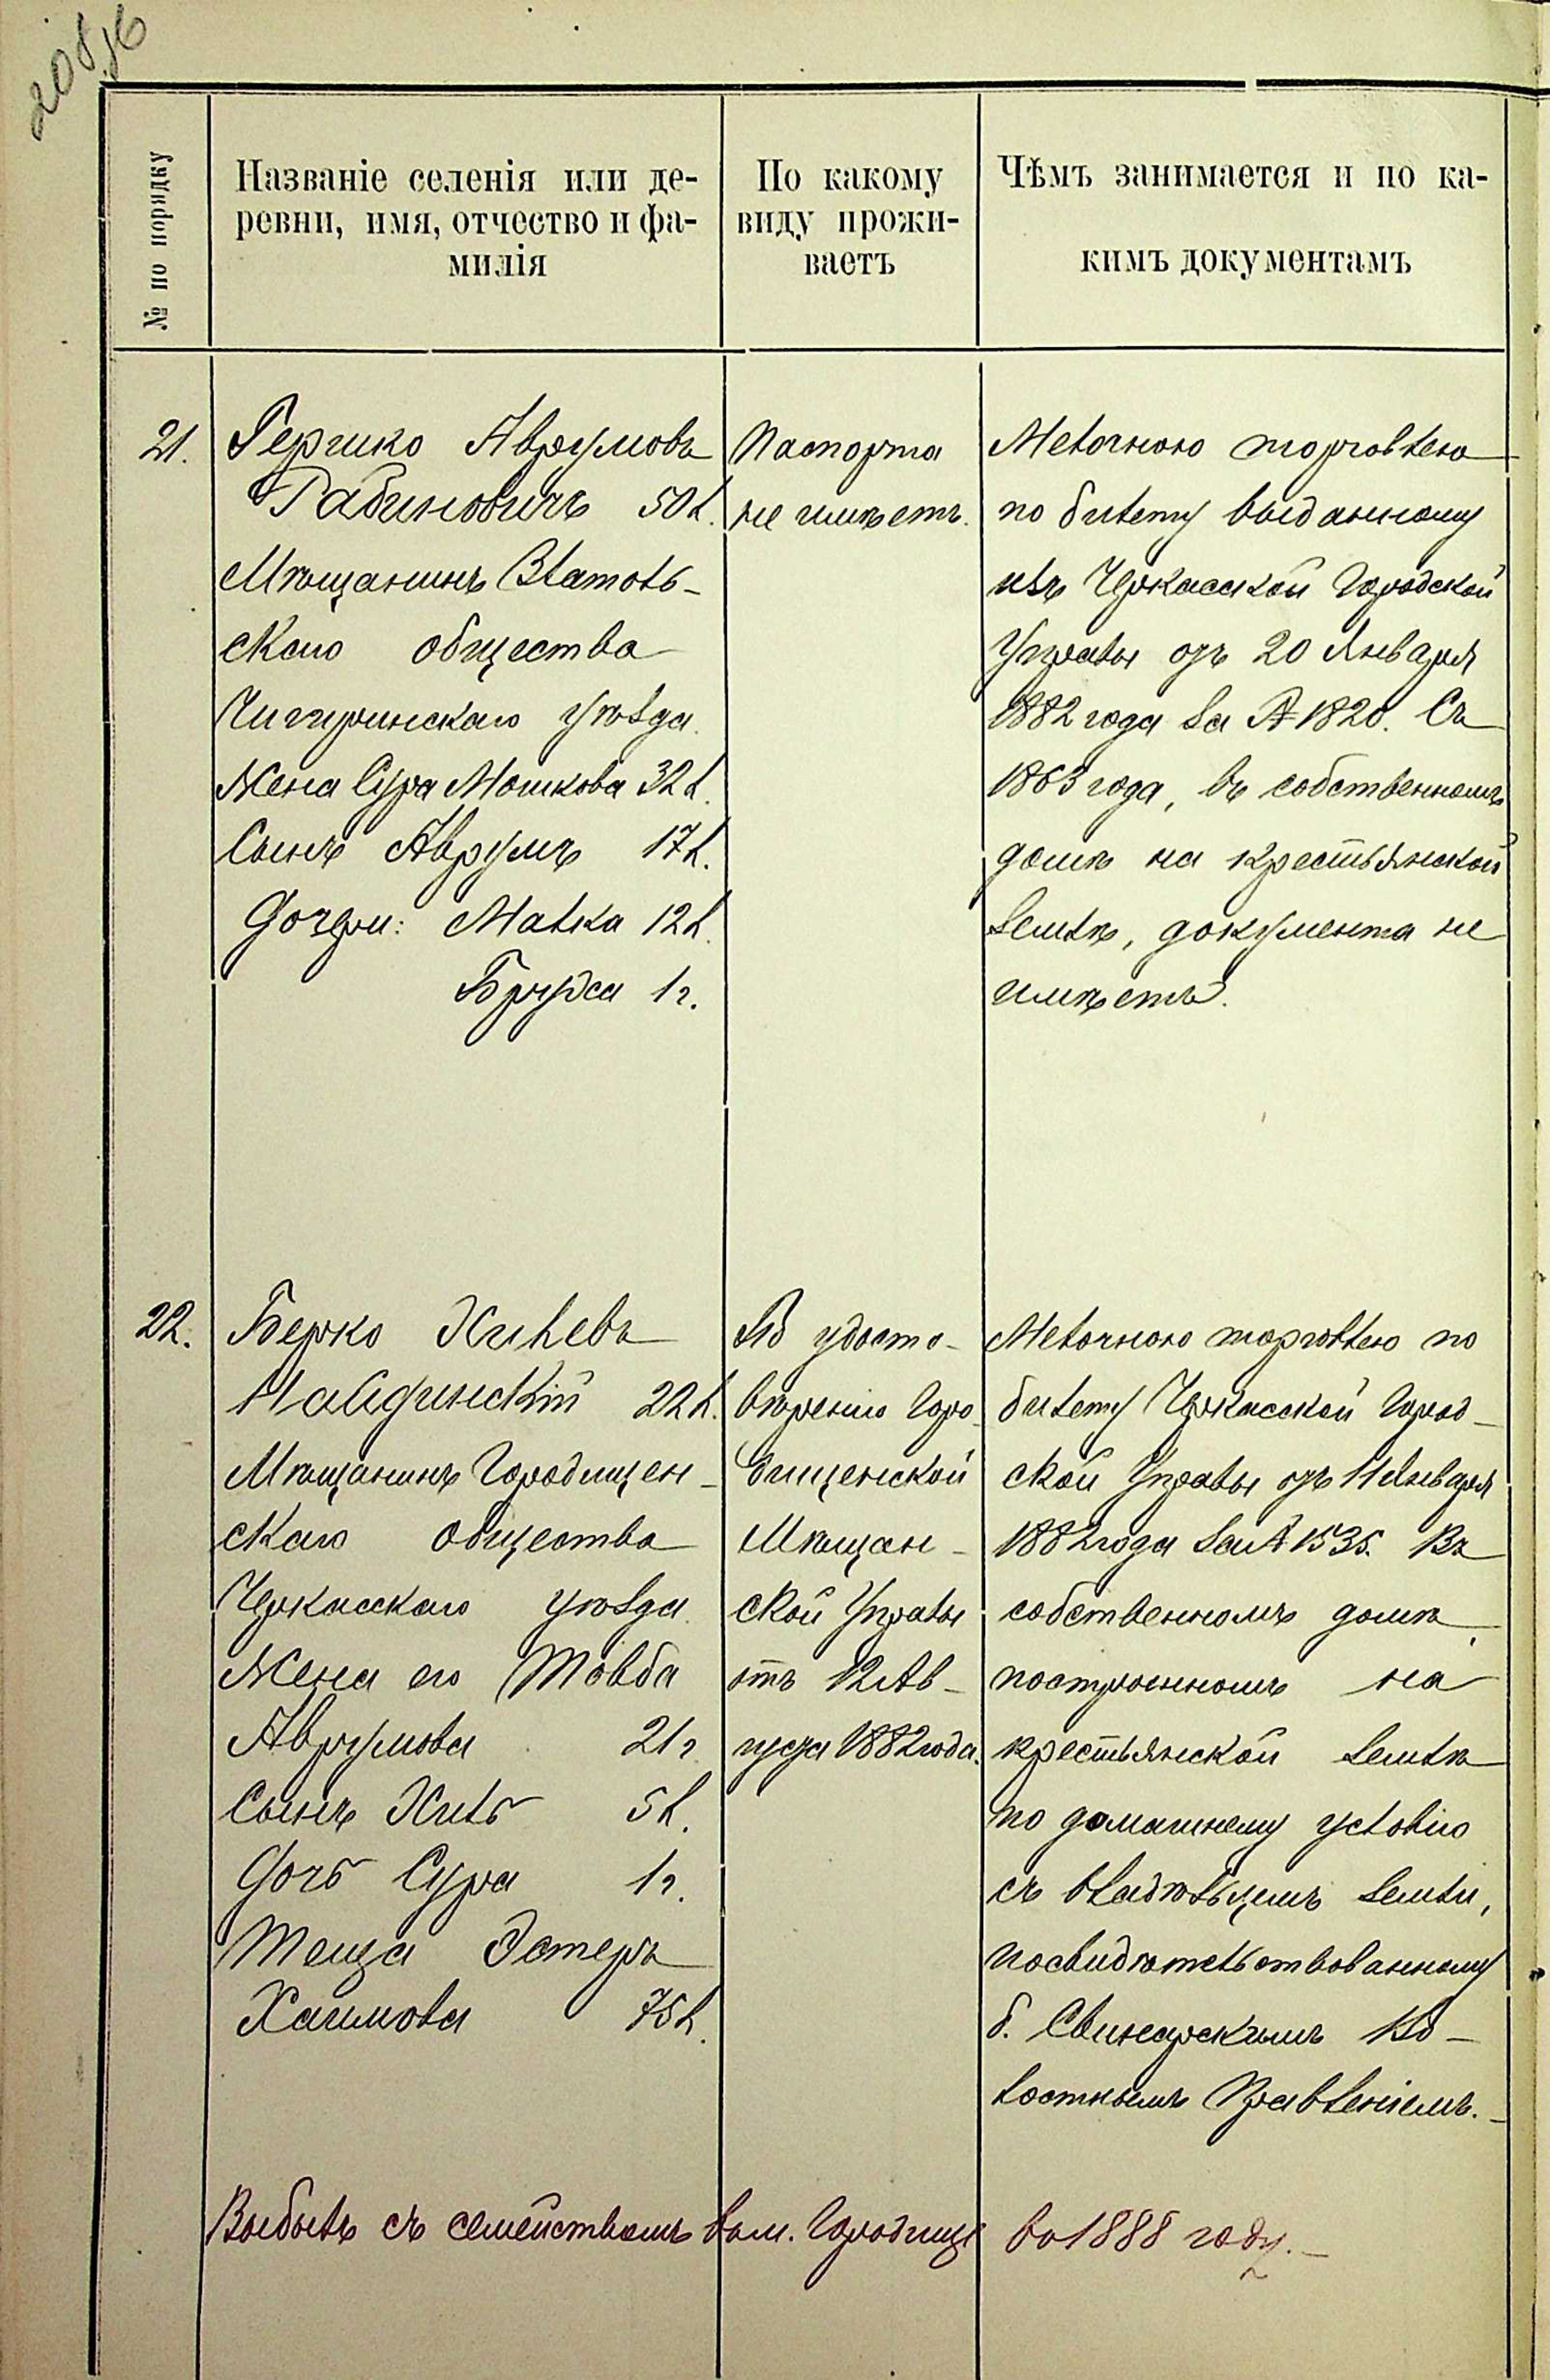 208
№ по порядку
Названіе селенія или де-
ревни, имя, отчество и фа-
милія
По какому
виду прожи-
ваетъ
Чѣмъ занимается и по ка-
кимъ документамъ
21.
Гершко Аврумовъ
Рабиновичъ 50 л.
Мѣщанинъ Златополь-
скаго общества
Чигиринскаго уѣзда
Жена Сура Мошкова 32 л.
Сынъ Аврумъ 17 л.
Дочери: Малка 12 л.
Бруха 1 г.
Паспорта
не имѣетъ.
Мелочною торговлею
по билету выданному
изъ Черкасской Городской
Управы отъ 20 Января
1882 года за № 1820. Съ
1863 года, въ собственномъ
домѣ на крестьянской
землѣ, документа не
имѣетъ.
22.
Берко Хилевъ
22 л.
Мѣщанинъ Городищен-
скаго общества
Черкасскаго уѣзда
Жена его Товба
Аврумова 21 г.
Сынъ Хиль 5 л.
Дочь Сура 1 г.
Теща Эстеръ
Хаимова 75 л.
По удосто-
вѣренію Горо-
дищенской
Мѣщан-
ской Управы
отъ 12 Ав-
густа 1882 года.
Мелочною торговлею по
билету Черкасской Город-
ской Управы отъ 11 Января
1882 года за № 1535. Въ
собственномъ домѣ,
построенномъ на
крестьянской землѣ
по домашнему условію
съ владѣльцемъ земли,
посвидѣтельствованному
б. Свинарскимъ Во-
лостнымъ Правленіемъ.
Выбылъ съ семействомъ въ м. Городище въ 1888 году.